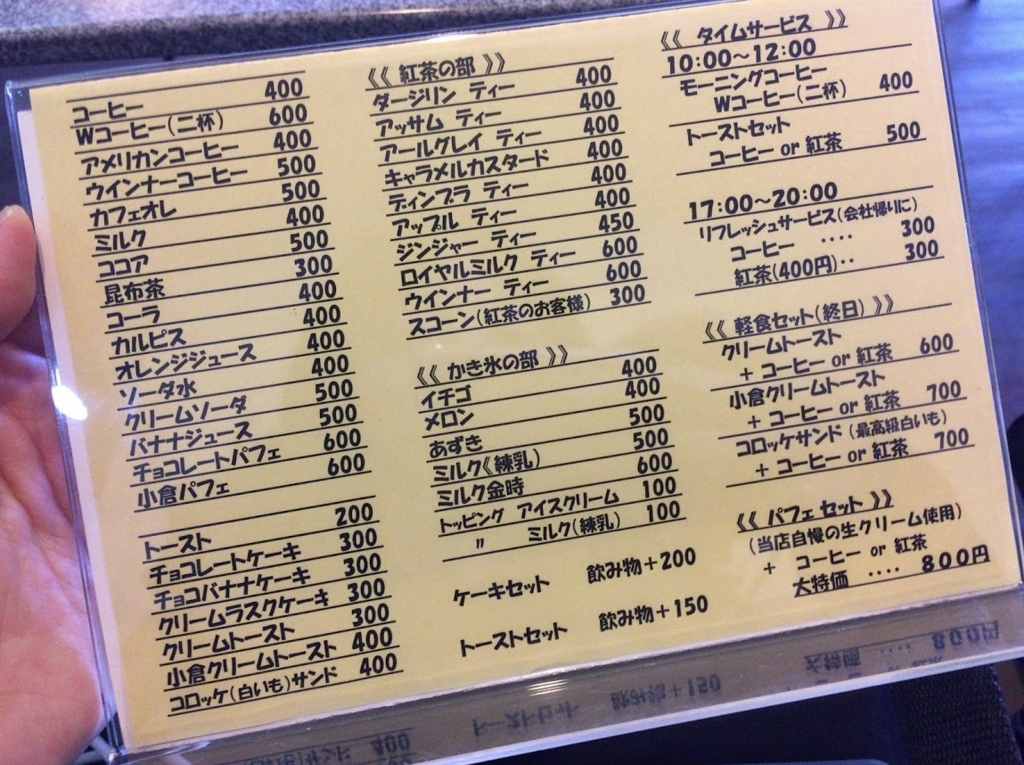 コーヒー 400
Wコーヒー(二杯) 600
アメリカンコーヒー 400
ウインナーコーヒー 500
カフェオレ 500
ミルク 400
ココア 500
昆布茶 300
コーラ 400
カルピス 400
オレンジジュース 400
ソーダ水 400
クリームソーダ 500
バナナジュース 500
チョコレートパフェ 600
小倉パフェ 600
トースト 200
チョコレートケーキ 300
チョコバナナケーキ 300
クリームラスクケーキ 300
クリームトースト 300
小倉クリームトースト 400
コロッケ(白いも)サンド 400
《《 紅茶の部 》》
ダージリン ティー 400
アッサム ティー 400
アールグレイ ティー 400
キャラメルカスタード 400
ディンブラ ティー 400
アップル ティー 400
ジンジャー ティー 450
ロイヤルミルク ティー 600
ウインナー ティー 600
スコーン(紅茶のお客様) 300
《《 かき氷の部 》》
イチゴ 400
メロン 400
あずき 500
ミルク(練乳) 500
ミルク金時 600
トッピング アイスクリーム 100
〃 ミルク(練乳) 100
ケーキセット 飲み物+200
トーストセット 飲み物+150
《《 タイムサービス 》》
10:00〜12:00
モーニングコーヒー
Wコーヒー(二杯) 400
トーストセット
コーヒー or 紅茶 500
17:00〜20:00
リフレッシュサービス(会社帰りに)
コーヒー ‥‥ 300
紅茶(400円)‥ 300
《《 軽食セット(終日) 》》
クリームトースト
+ コーヒー or 紅茶 600
小倉クリームトースト
+ コーヒー or 紅茶 700
コロッケサンド (最高級白いも)
+ コーヒー or 紅茶 700
《《 パフェセット 》》
(当店自慢の生クリーム使用)
+ コーヒー or 紅茶
大特価 ‥‥ 800円